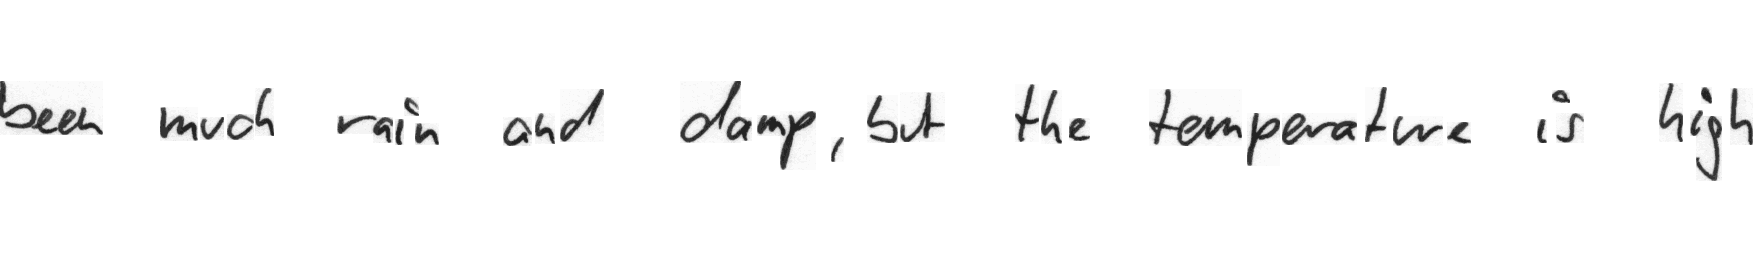 been much rain and damp, but the temperature is high